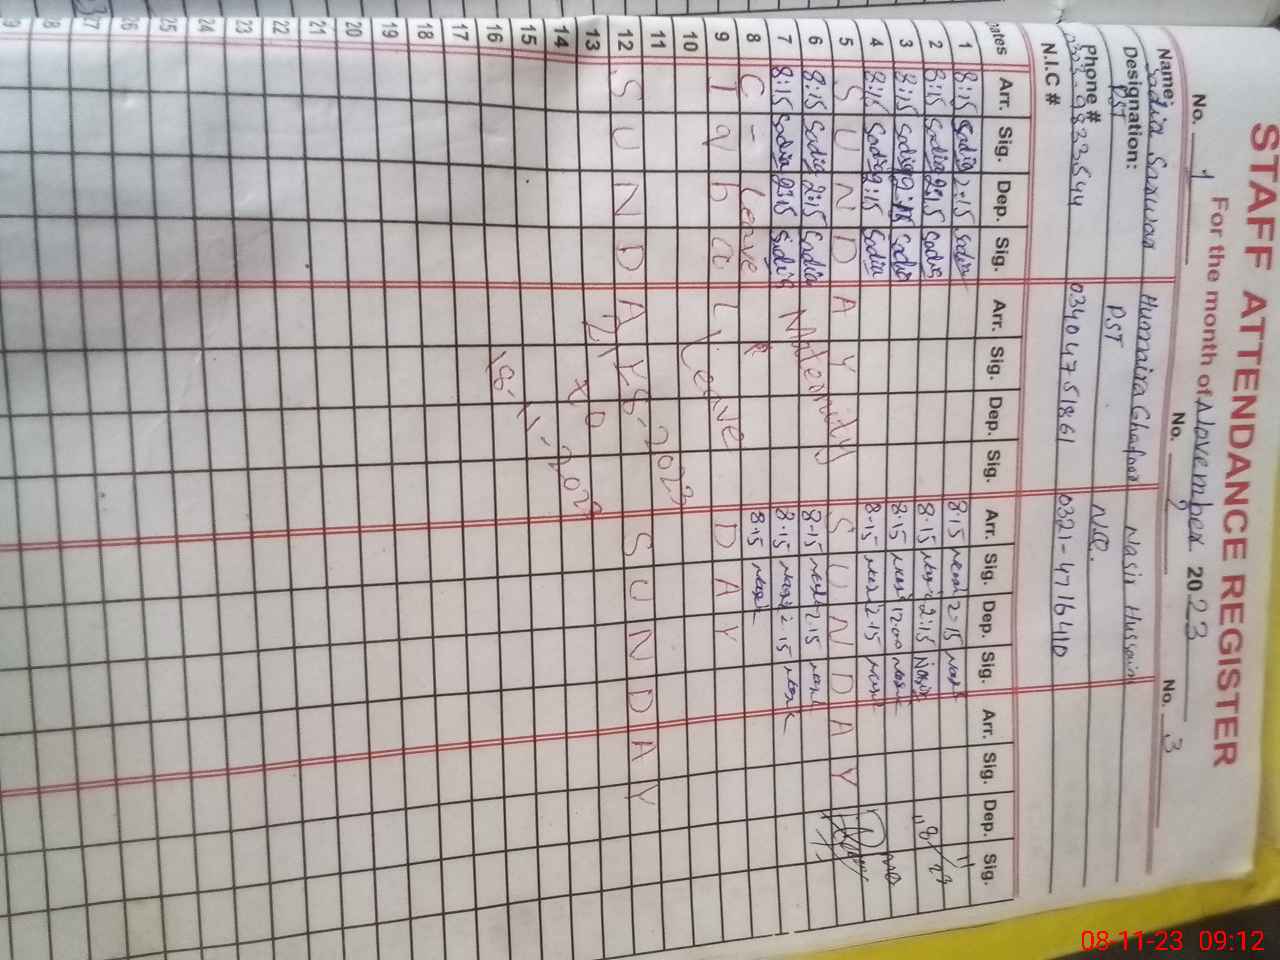 STAFF ATTENDANCE REGISTER
For the month of November 2023
No. 1 No. 2 No. 3
Name: Sadia Sarwar Humaira Ghafoor Nasir Hussain
Designation: PST PST N.Q.
Phone # 9833544 03404751861 0321-4716410
N.I.C #
Dates Arr. Sig. Dep. Sig. Arr. Sig. Dep. Sig. Arr. Sig. Dep. Sig. Arr. Sig. Dep. Sig.
1 8:15 Sadia 2:15 Sadia 8:15 2:15
2 8:15 Sadia 2:15 Sadia 8:15 2:15 Nasir
3 8:15 Sadia Sadia 8:15 1200
4 8:15 Sadia 2:15 Sadia 8-15 2-15
5 S U N D A Y S U N D A Y
6 8:15 Sadia 2:15 Sadia 8-15 2.15
7 8:15 Sadia 2:15 Sadia 8-15 2.15
8 C - Leave 8.15
Maternity Leave
9 I q b a l D A Y
10
11
12 S U N D A Y S U N D A Y
21-8-2023
to
18-11-202
13
14
15
16
17
18
19
20
21
22
23
24
25
26
27
28
08-11-23 09:12